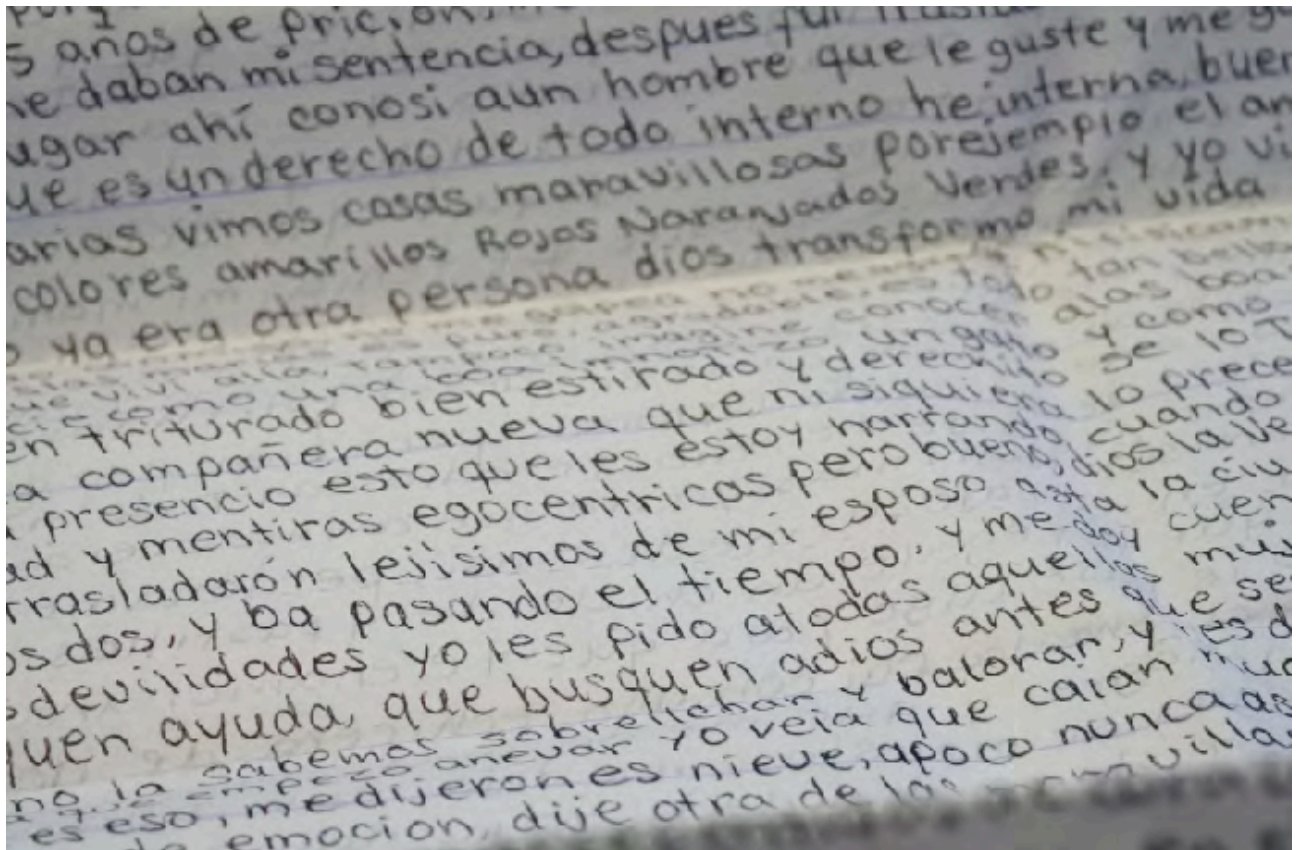 5 años de prición,
daban mi sentencia, despues fui
ugar ahí conosi aun hombre que le guste y me g
ue es un derecho de todo interno he interna, buen
arias vimos cosas maravillosas porejemplo el am
colores amarillos Rojos Naranjados Verdes, y yo vi
ya era otra persona dios transformo mi vida
no me
es puro, agradable, es todo tan bello
ue viví alla, tampoco imagine conocer alas boas
como una boa un gato y como
en triturado bien estirado y derechito se lo T
a compañera nueva que ni siquiera lo prece
presencio esto que les estoy narrando, cuando
ad y mentiras egocentricas pero bueno, dios la ve
rasladarón lejisimos de mi esposo asta la ciu
os dos, y ba pasando el tiempo, y me doy cuen
devilidades yo les pido atodas aquellas muj
quen ayuda, que busquen adios antes que se
no la sabemos sobrellebar y balorar, y es d
empezo anevar yo veia que caian muc
es eso, me dijeron es nieve, apoco nunca as
emoción, dije otra de las